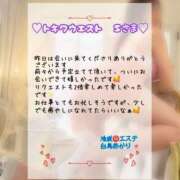 ♡トキワウエスト　Sさま♡
昨日は会いに来てくださりありがとう
ございます。
前々から予定立てて頂いて、ついにお
会いできて嬉しかったです🥰
リクエストも2倍楽しめて幸しかったで
す✨
お仕事とてもお忙しそうですが、少し
でも癒やしになれてたらいいな🙏💕
池袋エステ
白鳥あかり